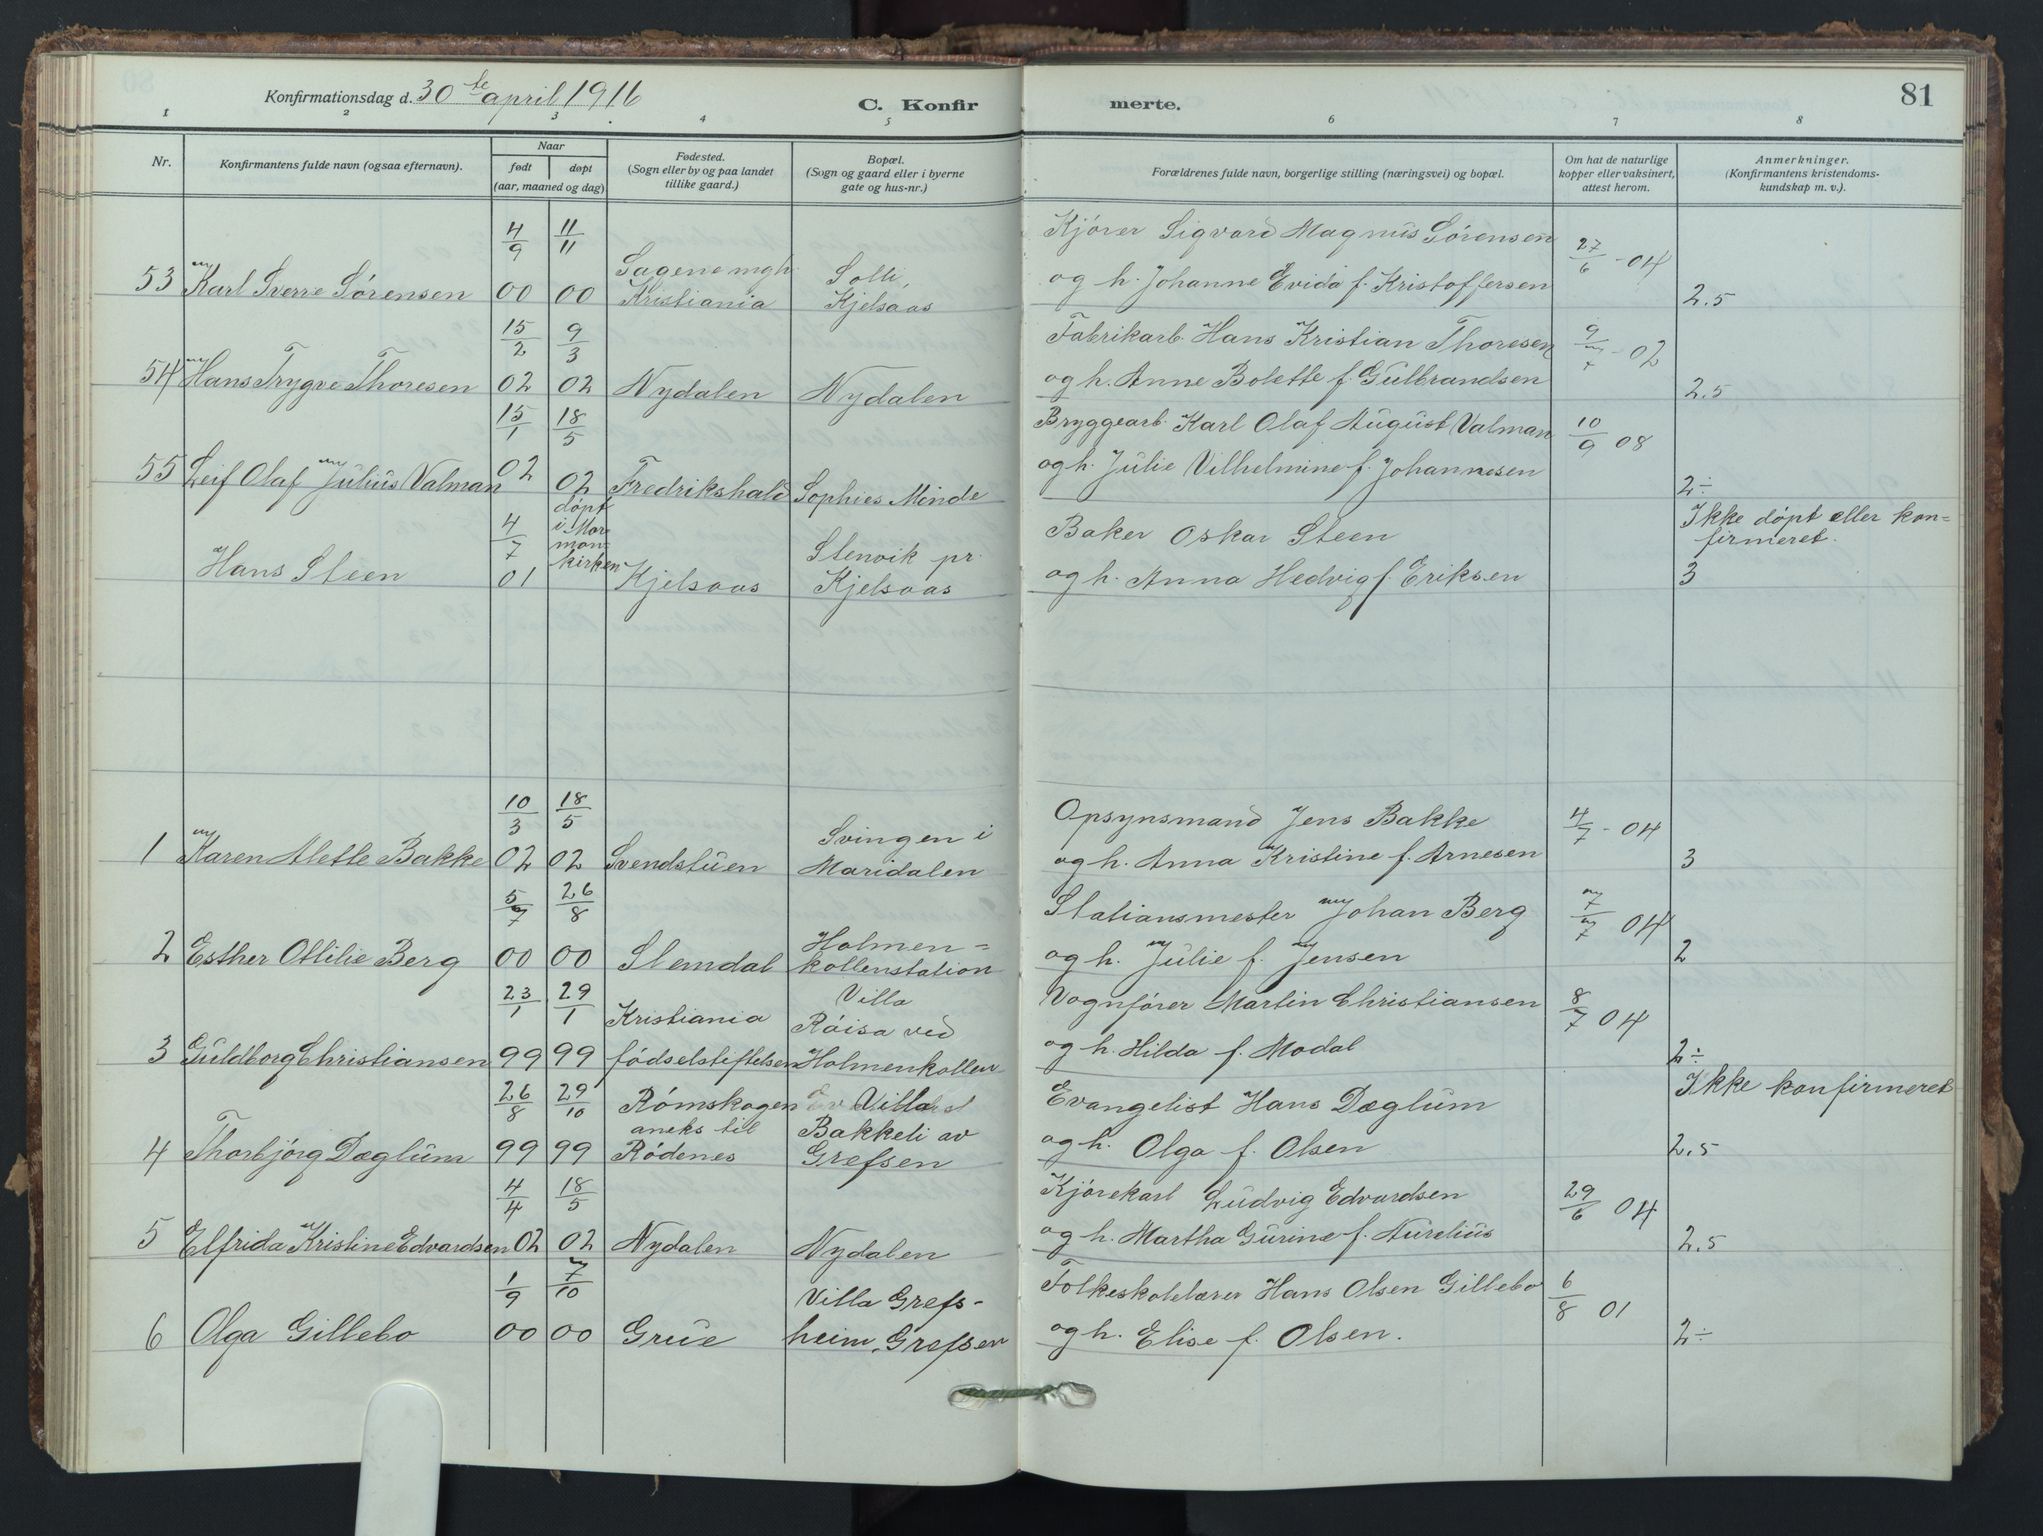 Konfirmationsdag d. 30te april 1916
C. Konfir
merte.
81
1 2 3 4 5 6 7 8
Nr.
Konfirmantens fulde navn (ogsaa efternavn).
Naar
født døpt
(aar, maaned og dag)
Fødested.
(Sogn eller by og paa landet
tillike gaard.)
Bopæl.
(Sogn og gaard eller i byerne
gate og hus-nr.)
Forældrenes fulde navn, borgerlige stilling (næringsvei) og bopæl.
Om hat de naturlige
kopper eller vaksinert,
attest herom.
Anmerkninger.
(Konfirmantens kristendoms-
kundskap m. v.).
4/9 11/11 Kjører Sigvard Magnus Sørensen 27/6 - 04
Sagene mgh. Solli,
53 Karl Sverre Sørensen 00 00 Kristiania Kjelsaas og h. Johanne Evida f. Kristoffersen 2.5
15/2 9/3 Fabrikarb. Hans Kristian Thoresen 9/7 - 02
54 Hans Trygve Thoresen 02 02 Nydalen Nydalen og h. Anne Bolette f. Gulbrandsen 2.5
15/1 18/5 Bryggearb. Karl Olaf August Valman 10/9 08
55 Leif Olaf Julius Valman 02 02 Fredrikshald Sophies Minde og h. Julie Vilhelmine f. Johannesen 2÷
4/7 døpt
i Mor
mon-
kirken
Stenvik pr. Baker Oskar Steen Ikke døpt eller kon=
firmeret.
Hans Steen 01 Kjelsaas Kjelsaas og h. Anna Hedvig f. Eriksen 3
10/3 18/5 Svingen i Opsynsmand Jens Bakke 4/7 - 04
1 Karen Alette Bakke 02 02 Svendstuen Maridalen og h. Anna Kristine f. Arnesen 3
5/7 26/8 Holmen= Stationsmester Johan Berg 7/7 04
2 Esther Ottilie Berg 00 00 Slemdal kollenstation og h. Julie f. Jensen 2
23/1 29/1 Kristiania Villa
Røisa ved Vognfører Martin Christiansen 8/7 04
3 Guldborg Christiansen 99 99 fødselstiftelsen Holmenkollen og h. Hilda f. Modal 2÷
26/8 29/10 Rømskogen Villa Evangelist Hans Dæglum Ikke konfirmeret
aneks til Bakkeli av
4 Thorbjørg Dæglum 99 99 Rødenes Grefsen og h. Olga f. Olsen 2.5
4/4 18/5 Kjørekarl Ludvig Edvardsen 29/6 04
5 Elfrida Kristine Edvardsen 02 02 Nydalen Nydalen og h. Martha Gurine f. Aurelius 2.5
1/9 7/10 Villa Grefs- Folkeskolelærer Hans Olsen Gillebo 6/8 01
6 Olga Gillebo 00 00 Grue heim, Grefsen og h. Elise f. Olsen. 2÷